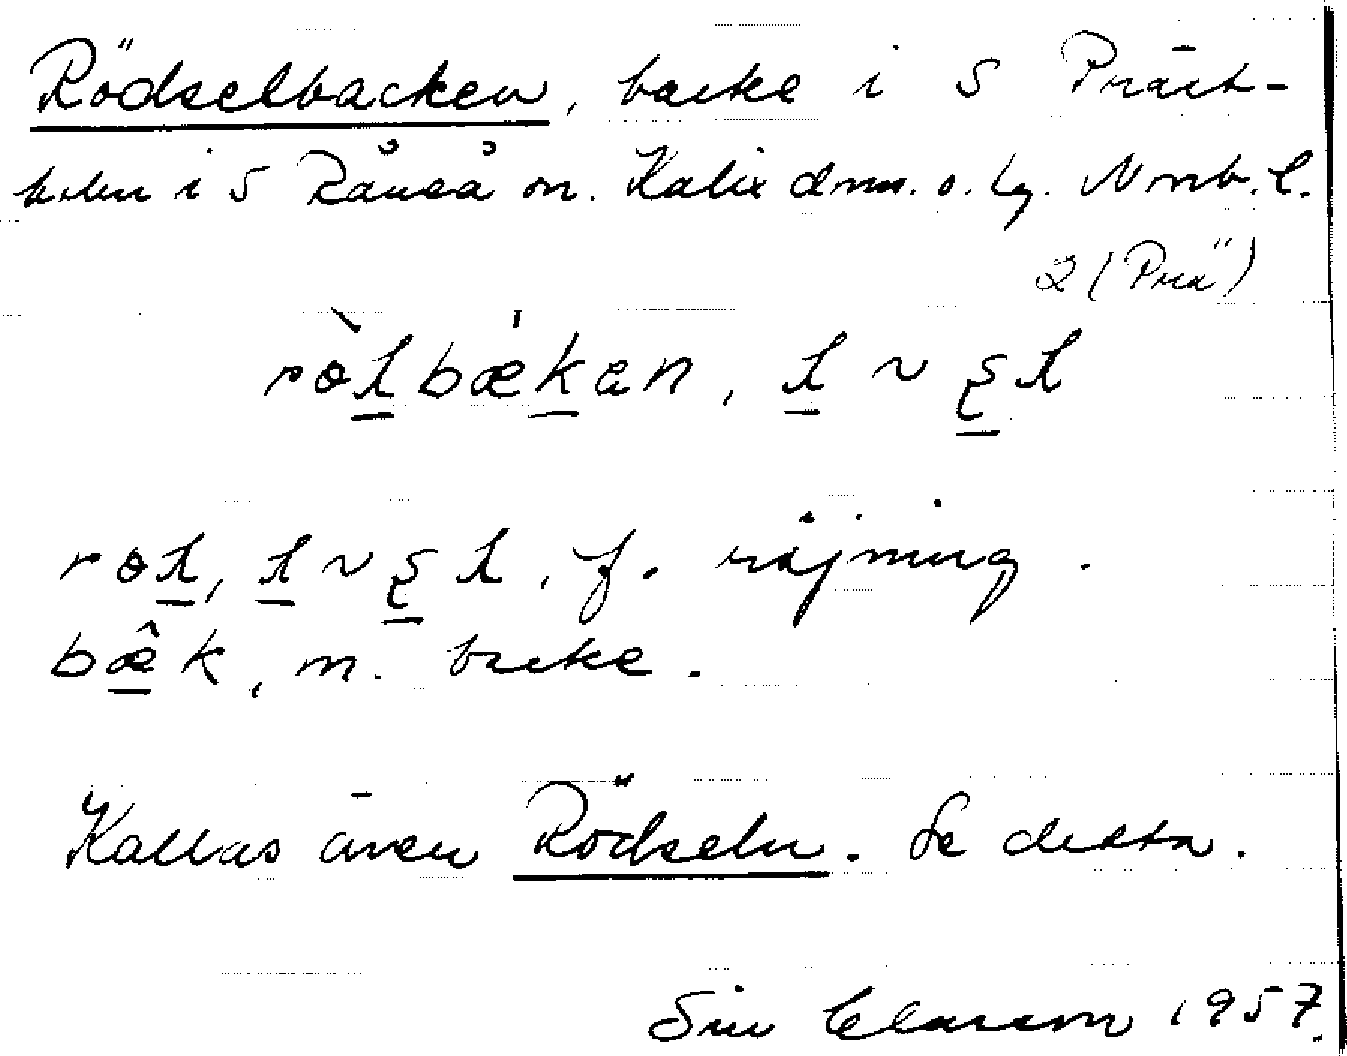 Rödselbacken, backe i S Präst-
holm i S Råneå sn. Kalix dmn. o. lg. Nmb. l.
2 (Prä)
röłbækan, ł ~ ʂł
roł, ł ~ ʂł, f. röjning.
bæ̂k, m. backe.
Kallas även Rödseln. Se detta.
Siw Clarson 1957.